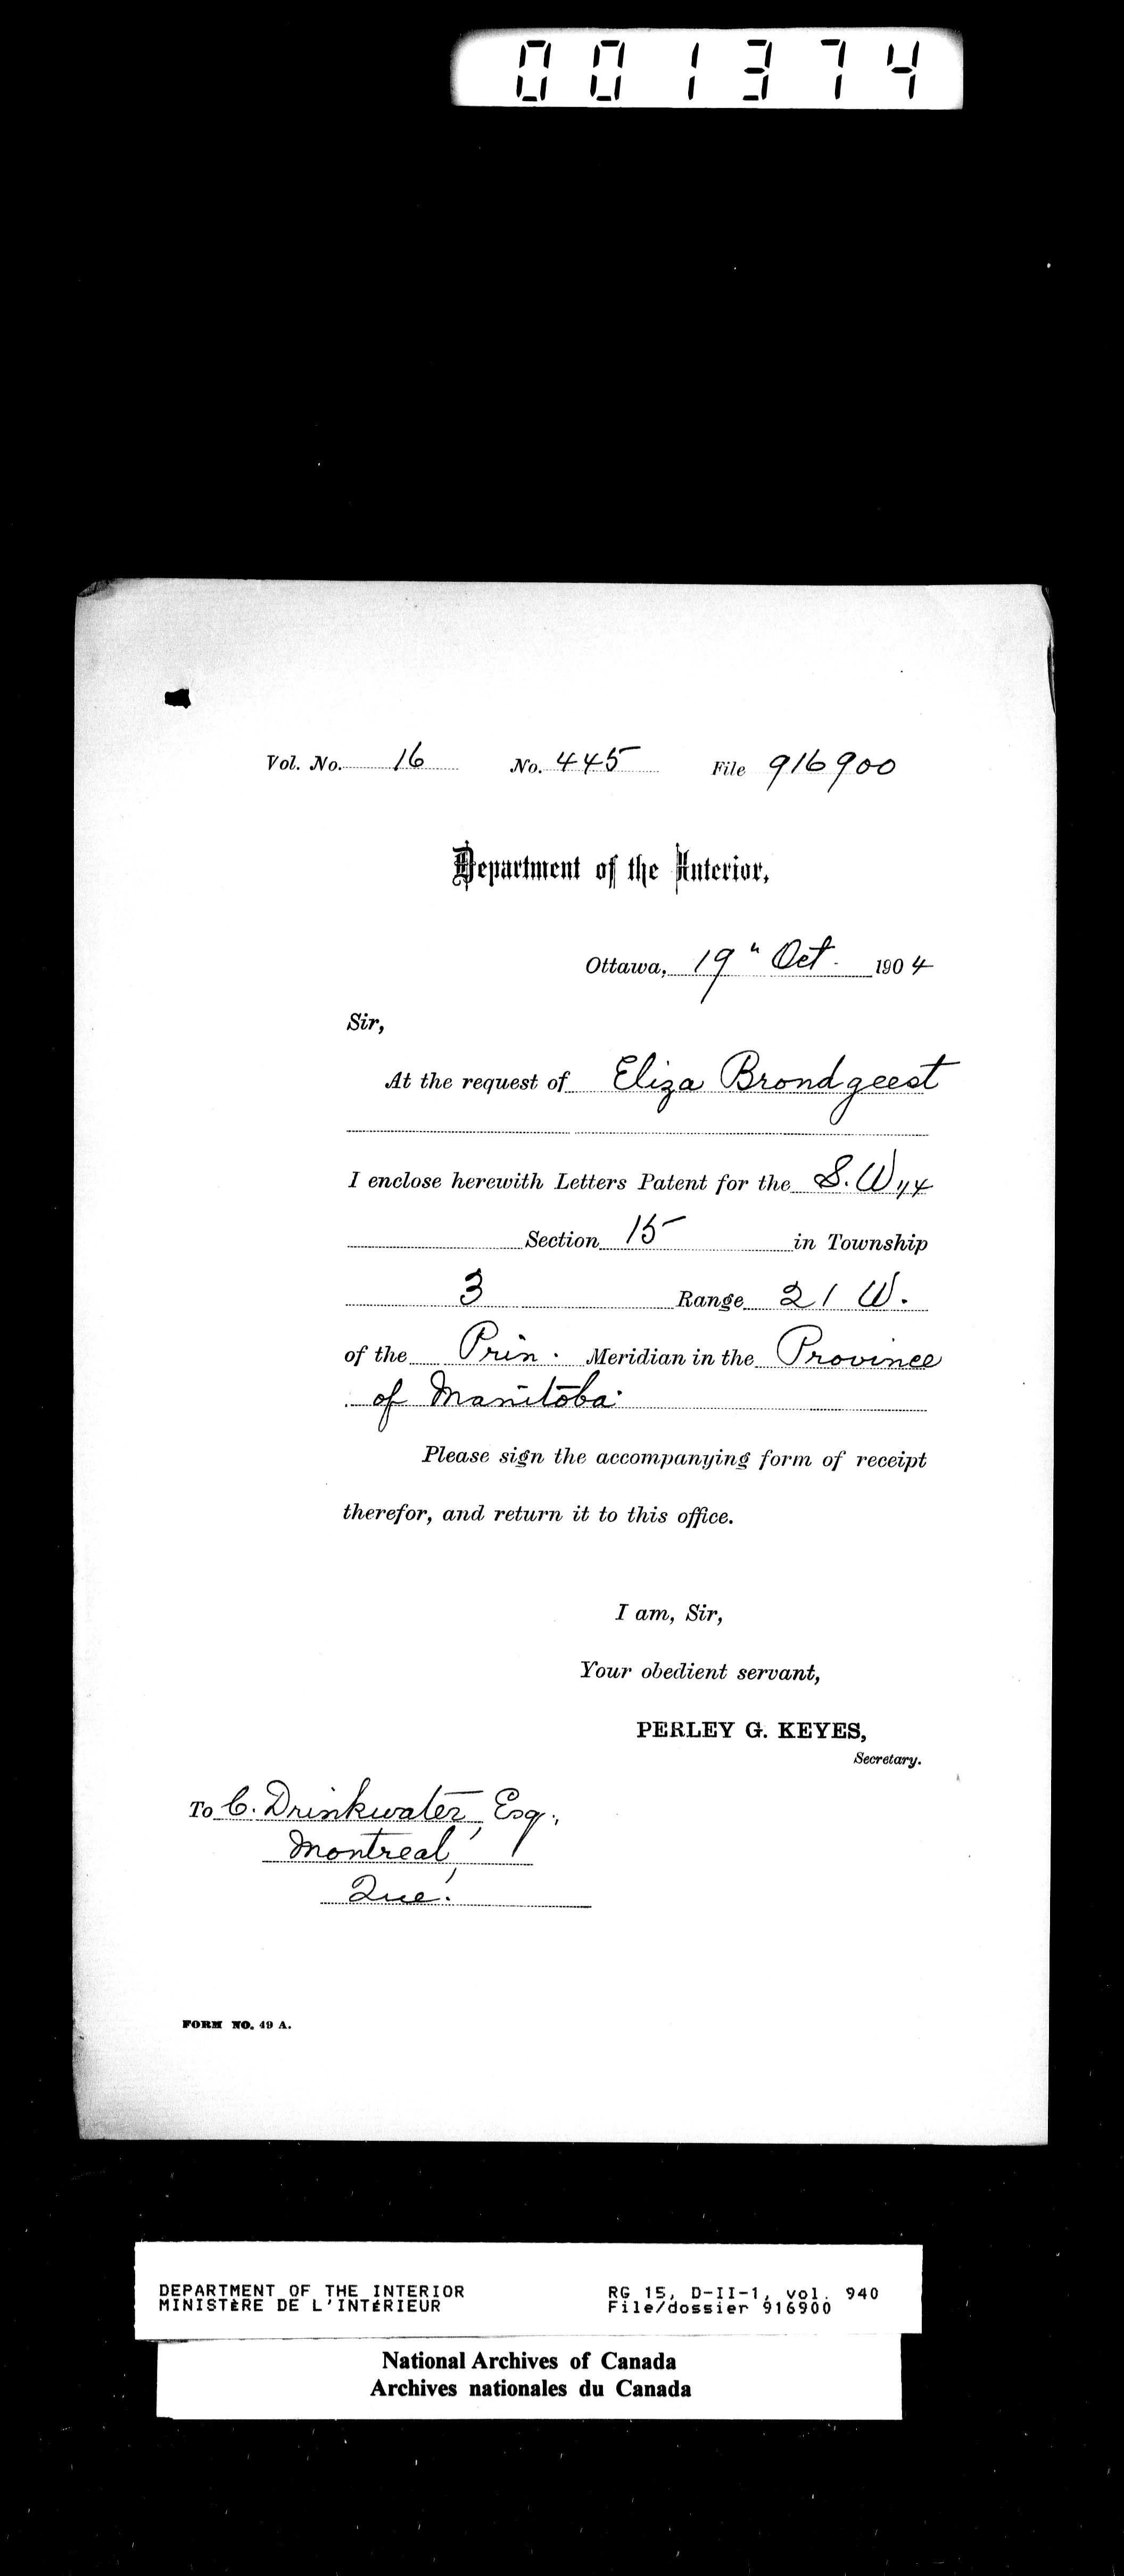 001374
Vol. No. 16 No. 445 File 916900
Department of the Interior,
Ottawa, 19" Oct. 1904
Sir,
At the request of Eliza Brondgeest
I enclose herewith Letters Patent for the S. W 1/4
Section 15 in Township
3 Range 21 W.
of the Prin. Meridian in the Province
of Manitoba.
Please sign the accompanying form of receipt
therefor, and return it to this office.
I am, Sir,
Your obedient servant,
PERLEY G. KEYES,
Secretary.
To C. Drinkwater, Esq.,
Montreal,
Que.
FORM NO. 49 A.
DEPARTMENT OF THE INTERIOR RG 15, D-II-1, vol. 940
MINISTÈRE DE L'INTÉRIEUR File/dossier 916900
National Archives of Canada
Archives nationales du Canada